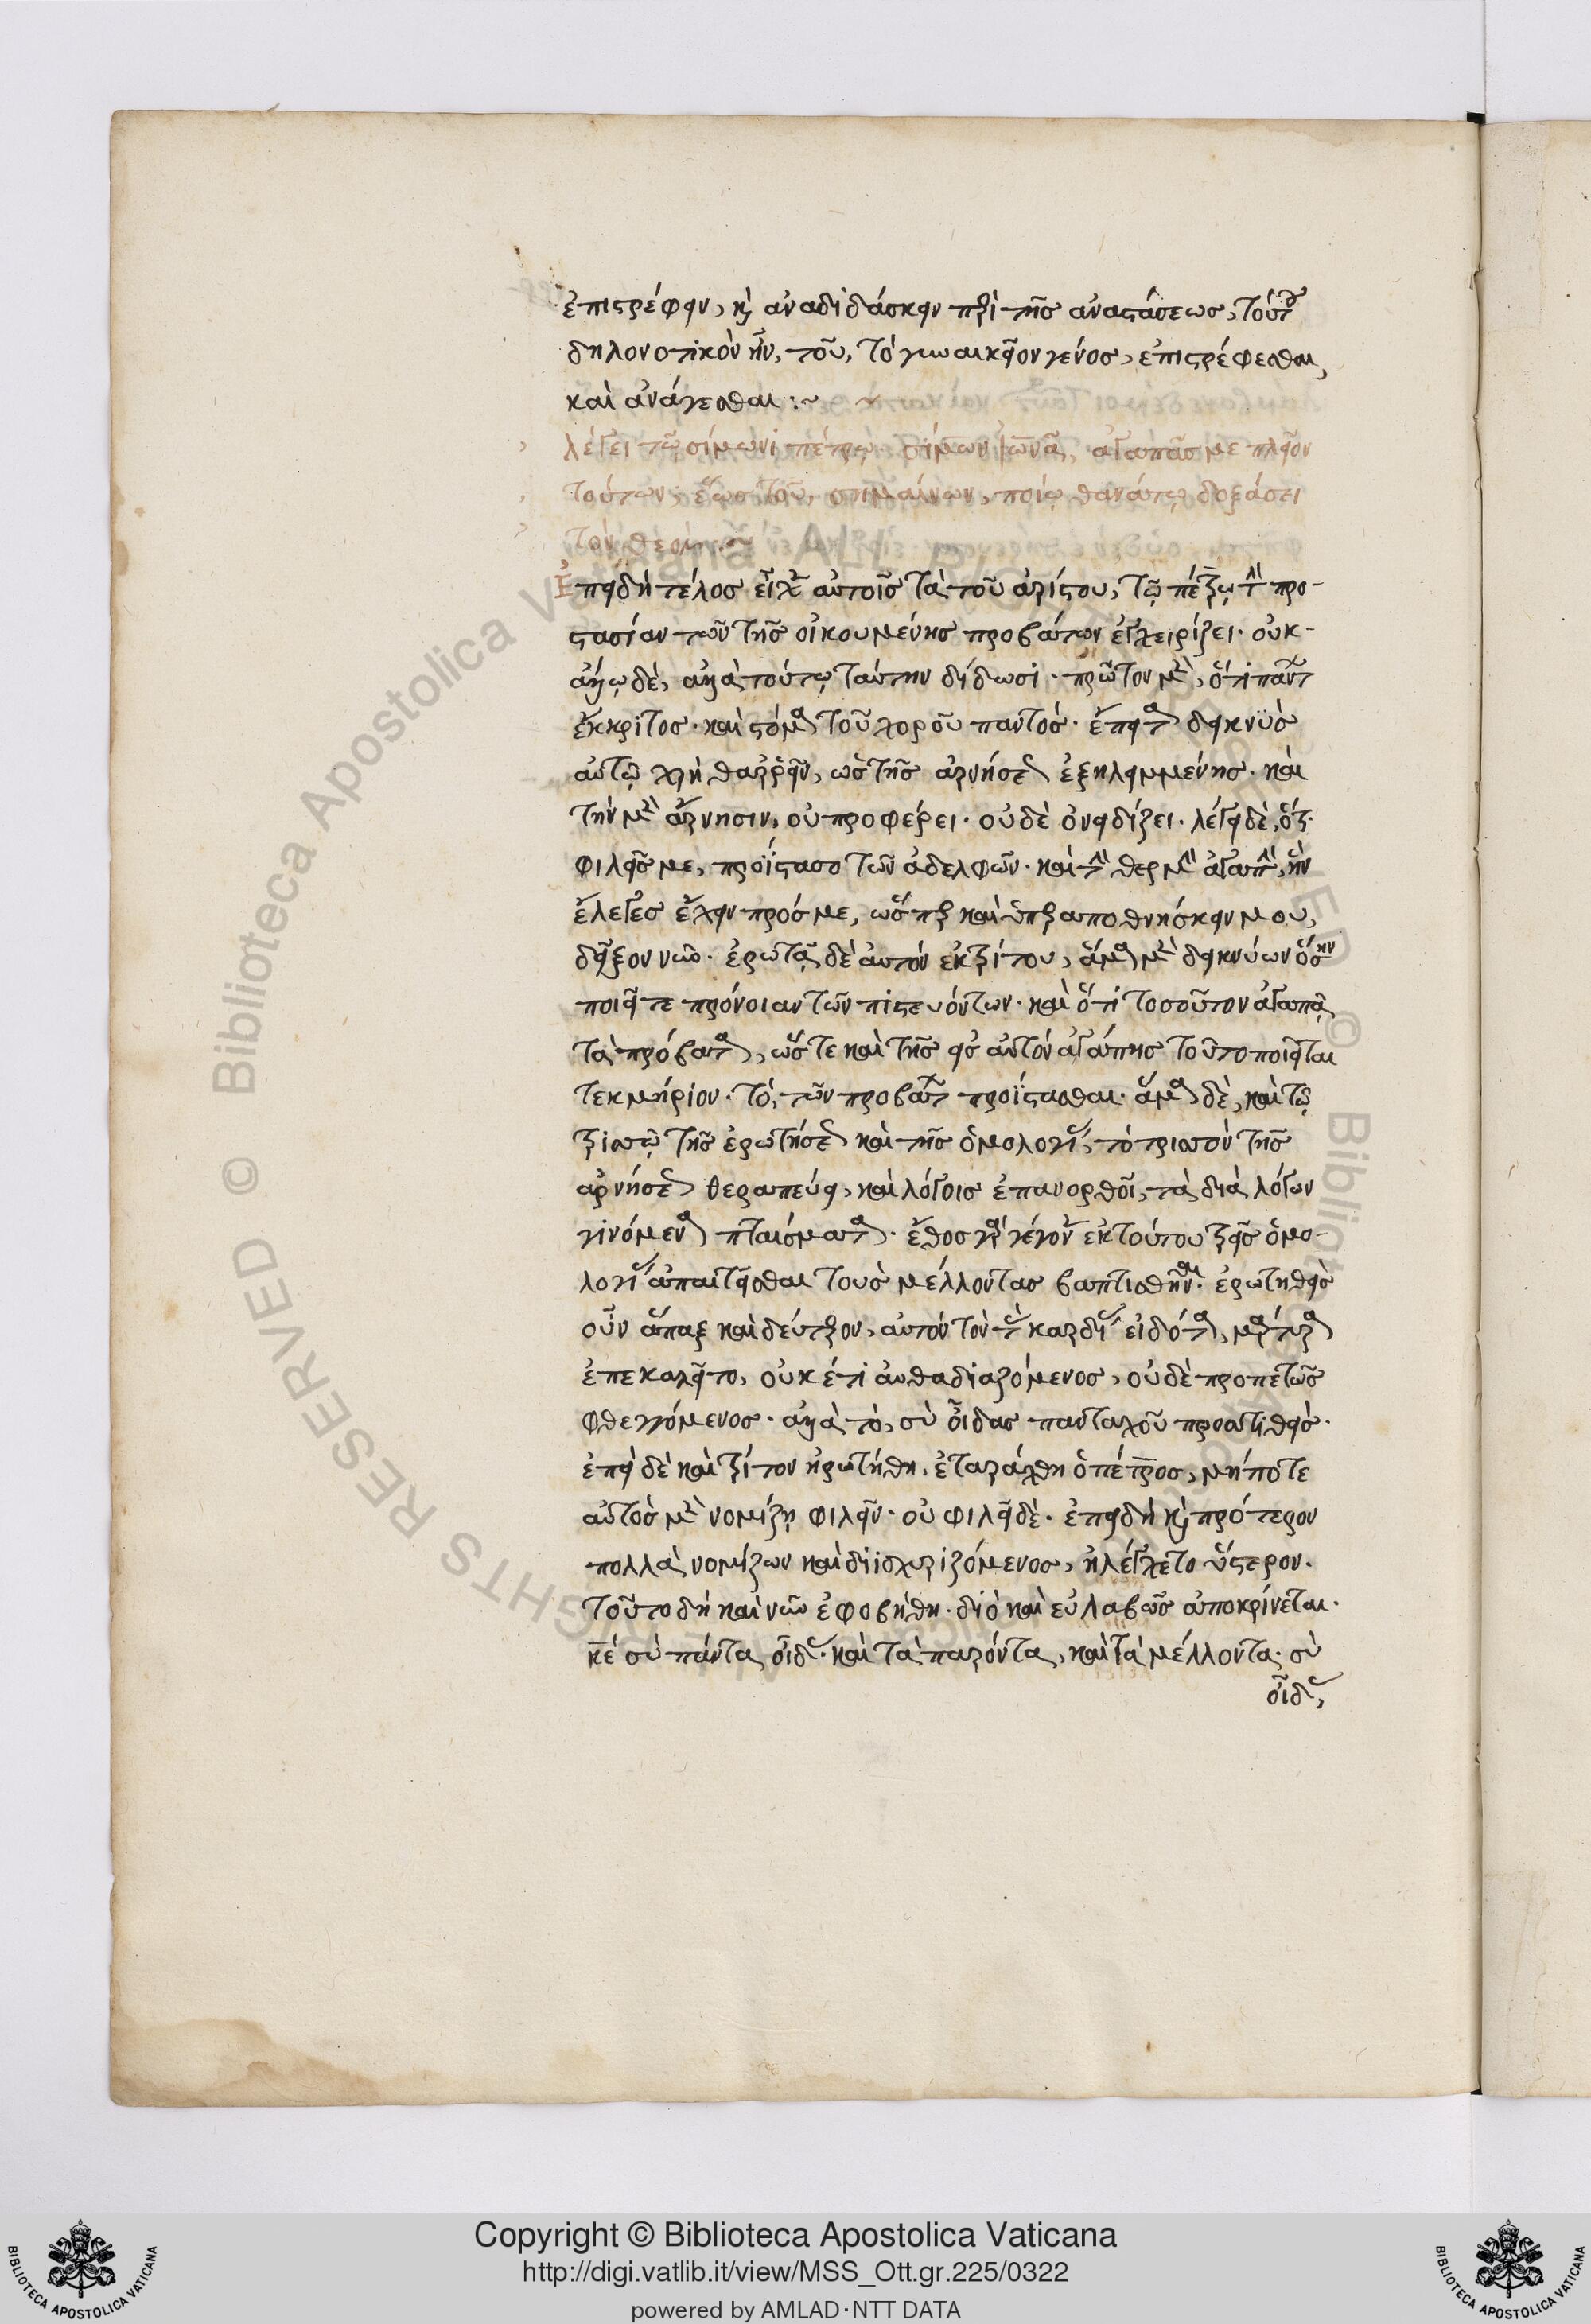 ἐπιστρέφειν, καὶ ἀναδιδάσκειν περὶ τῆς ἀναστάσεως, τούτου
δηλονοτικὸν ἦν, τοῦ, τὸ γυναικεῖον γένος, ἐπιστρέφεσθαι,
καὶ ἀνάγεσθαι :~
λέγει τῷ σίμωνι πέτρῳ· σίμων ἰωνᾶ, ἀγαπᾷς με πλεῖον
τούτων; ἕως τοῦ, σημαίνων, ποίῳ θανάτῳ δοξάσει
τὸν θεόν :~
Ἐπειδὴ τέλος εἶχε αὐτοῖς τὰ τοῦ ἀρίστου, τῷ πέτρῳ τὴν προ-
στασίαν τῶν τῆς οἰκουμένης προβάτων ἐγχειρίζει. οὐκ-
ἄλλῳ δὲ, ἀλλὰ τούτῳ ταύτην δίδωσι. πρῶτον μὲν, ὅτι πάντων
ἔκκριτος. καὶ στόμα τοῦ χοροῦ παντός. ἔπειτα δεικνὺς
αὐτῷ χρὴ θαρρεῖν, ὡς τῆς ἀρνήσεως ἐξηλειμμένης. καὶ
τὴν μὲν ἄρνησιν, οὐ προφέρει. οὐδὲ ὀνειδίζει. λέγει δὲ, ὅτι
φιλεῖς με, προΐστασο τῶν ἀδελφῶν. καὶ τὴν θερμὴν ἀγάπην, ἣν
ἔλεγες ἔχειν πρός με, ὥσπερ καὶ ὑπεραποθνήσκειν μου,
δεῖξον νῦν. ἐρωτᾷ δὲ αὐτὸν ἐκ τρίτου, ἅμα μὲν δεικνύων ὅσην
ποιεῖται πρόνοιαν τῶν πιστευόντων. καὶ ὅτι τοσοῦτον ἀγαπᾷ
τὰ πρόβατα, ὥστε καὶ τῆς εἰς αὐτὸν ἀγάπης τοῦτο ποιεῖται
τεκμήριον. τὸ, τῶν προβάτων προΐστασθαι. ἅμα δὲ, καὶ τῷ
τρισσῷ τῆς ἐρωτήσεως καὶ τῆς ὁμολογίας, τὸ τρισσὸν τῆς
ἀρνήσεως θεραπεύει, καὶ λόγοις ἐπανορθοῖ, τὰ διὰ λόγων
γινόμενα πταίσματα. ἔθος γὰρ γέγονεν ἐκ τούτου τρεῖς ὁμο-
λογίας ἀπαιτεῖσθαι τοὺς μέλλοντας βαπτισθῆναι. ἐρωτηθεὶς
οὖν ἅπαξ καὶ δεύτερον, αὐτὸν τὸν τὰς καρδίας εἰδότα, μάρτυρα
ἐπεκαλεῖτο, οὐκέτι αὐθαδιαζόμενος, οὐδὲ προπετῶς
φθεγγόμενος. ἀλλὰ τὸ, σὺ οἶδας πανταχοῦ προστιθείς.
ἐπεὶ δὲ καὶ τρίτον ἠρωτήθη, ἐταράχθη ὁ πέτρος, μήποτε
αὐτὸς μὲν νομίζῃ φιλεῖν. οὐ φιλεῖ δὲ. ἐπειδὴ καὶ πρότερον
πολλὰ νομίζων καὶ διισχυριζόμενος, ἠλέγχετο ὕστερον.
τοῦτο δὴ καὶ νῦν ἐφοβήθη. διὸ καὶ εὐλαβῶς ἀποκρίνεται.
κε σὺ πάντα οἶδας. καὶ τὰ παρόντα, καὶ τὰ μέλλοντα. σὺ
οἶδας,
Copyright © Biblioteca Apostolica Vaticana
http://digi.vatlib.it/view/MSS_Ott.gr.225/0322
powered by AMLAD·NTT DATA